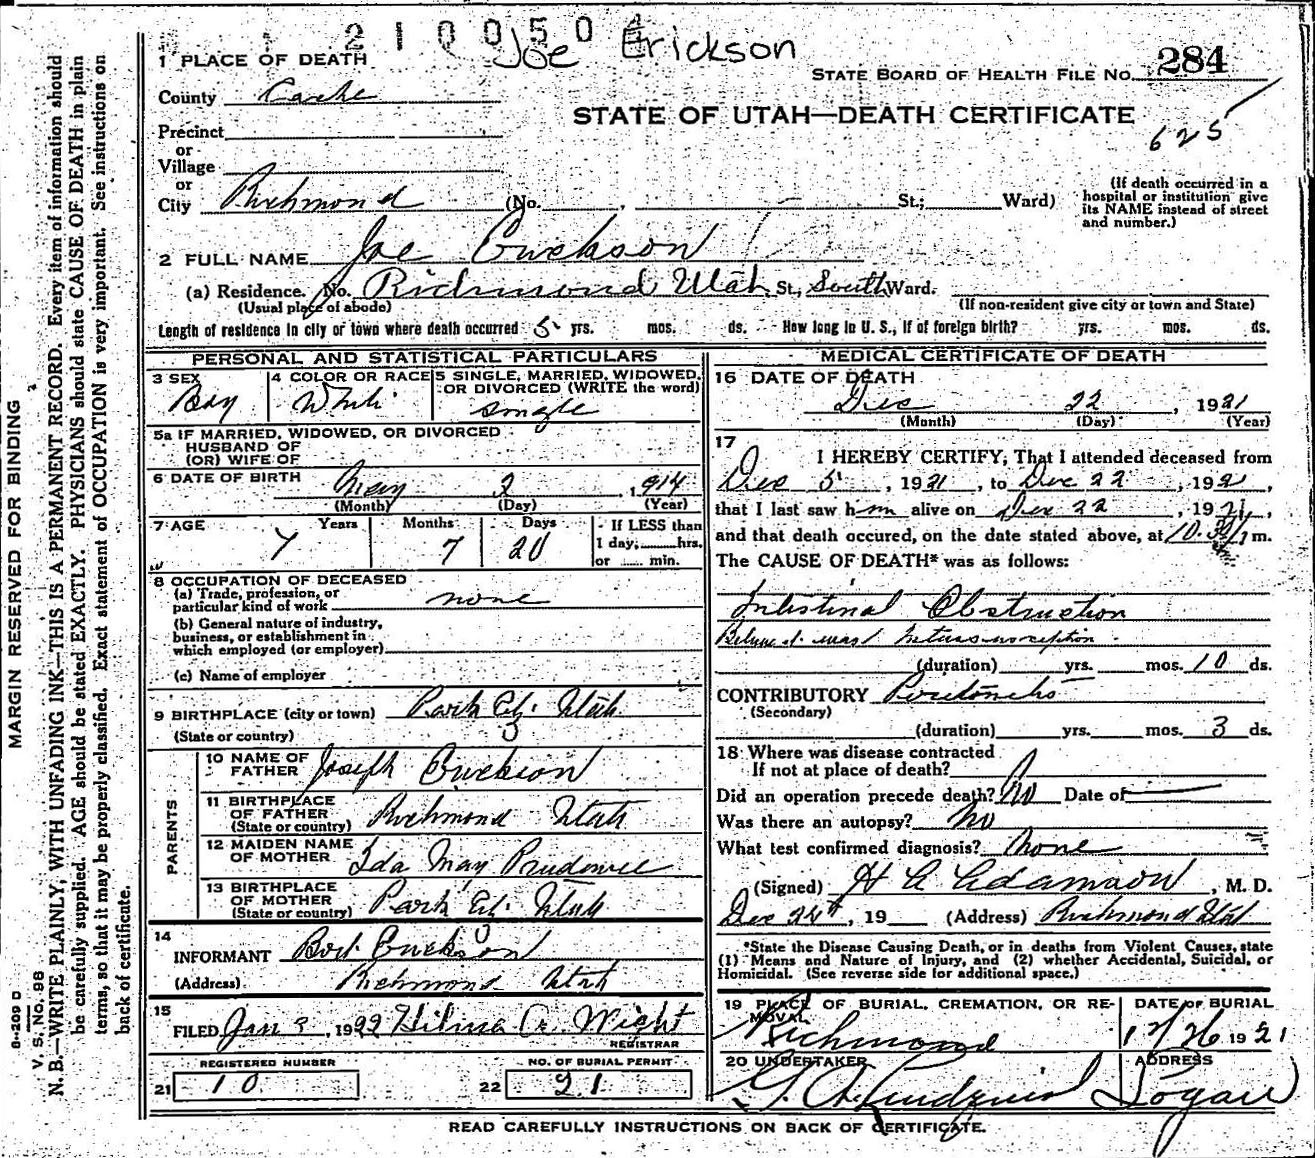 210050
Joe Erickson
1 PLACE OF DEATH
STATE BOARD OF HEALTH FILE No. 284
County Cache
STATE OF UTAH—DEATH CERTIFICATE
625
Precinct
or
Village
or
City Richmond (No. , St.; Ward)
(If death occurred in a hospital or institution give its NAME instead of street and number.)
2 FULL NAME Joe Erickson
(a) Residence. No. Richmond Utah St., South Ward.
(Usual place of abode)
(If non-resident give city or town and State)
Length of residence in city or town where death occurred 5 yrs. mos. ds. How long in U. S., if of foreign birth? yrs. mos. ds.
PERSONAL AND STATISTICAL PARTICULARS
3 SEX Boy
4 COLOR OR RACE White
5 SINGLE, MARRIED, WIDOWED, OR DIVORCED (WRITE the word) single
5a IF MARRIED, WIDOWED, OR DIVORCED
HUSBAND OF
(OR) WIFE OF
6 DATE OF BIRTH May 2, 1914
(Month) (Day) (Year)
7 AGE Years Months Days
7 7 20
If LESS than
1 day, hrs.
or min.
8 OCCUPATION OF DECEASED
(a) Trade, profession, or
particular kind of work none
(b) General nature of industry,
business, or establishment in
which employed (or employer)
(c) Name of employer
9 BIRTHPLACE (city or town) Park City Utah
(State or country)
PARENTS
10 NAME OF FATHER Joseph Erickson
11 BIRTHPLACE OF FATHER Richmond Utah
(State or country)
12 MAIDEN NAME OF MOTHER Ida May
13 BIRTHPLACE OF MOTHER Park City Utah
(State or country)
14
INFORMANT Erickson
(Address) Richmond Utah
15
FILED Jan 9, 1922 Hilma A. Wight
REGISTRAR
REGISTERED NUMBER
21 10
NO. OF BURIAL PERMIT
22 21
MEDICAL CERTIFICATE OF DEATH
16 DATE OF DEATH
Dec 22, 1921
(Month) (Day) (Year)
17
I HEREBY CERTIFY, That I attended deceased from
Dec 5, 1921, to Dec 22, 1921,
that I last saw him alive on Dec 22, 1921,
and that death occured, on the date stated above, at 10.30 m.
The CAUSE OF DEATH* was as follows:
Intestinal Obstruction
(duration) yrs. mos. 10 ds.
CONTRIBUTORY Peritonitis
(Secondary)
(duration) yrs. mos. 3 ds.
18 Where was disease contracted
If not at place of death?
Did an operation precede death? No Date of
Was there an autopsy? No
What test confirmed diagnosis? None
(Signed) H A Adamson, M. D.
Dec 24th, 19 (Address) Richmond Utah
*State the Disease Causing Death, or in deaths from Violent Causes, state
(1) Means and Nature of Injury, and (2) whether Accidental, Suicidal, or
Homicidal. (See reverse side for additional space.)
19 PLACE OF BURIAL, CREMATION, OR REMOVAL
Richmond
DATE OF BURIAL
12/26 1921
20 UNDERTAKER
ADDRESS
Logan
READ CAREFULLY INSTRUCTIONS ON BACK OF CERTIFICATE.
MARGIN RESERVED FOR BINDING
8-209 D
V. S. No. 98
N. B.—WRITE PLAINLY, WITH UNFADING INK—THIS IS A PERMANENT RECORD. Every item of information should
be carefully supplied. AGE should be stated EXACTLY. PHYSICIANS should state CAUSE OF DEATH in plain
terms, so that it may be properly classified. Exact statement of OCCUPATION is very important. See instructions on
back of certificate.